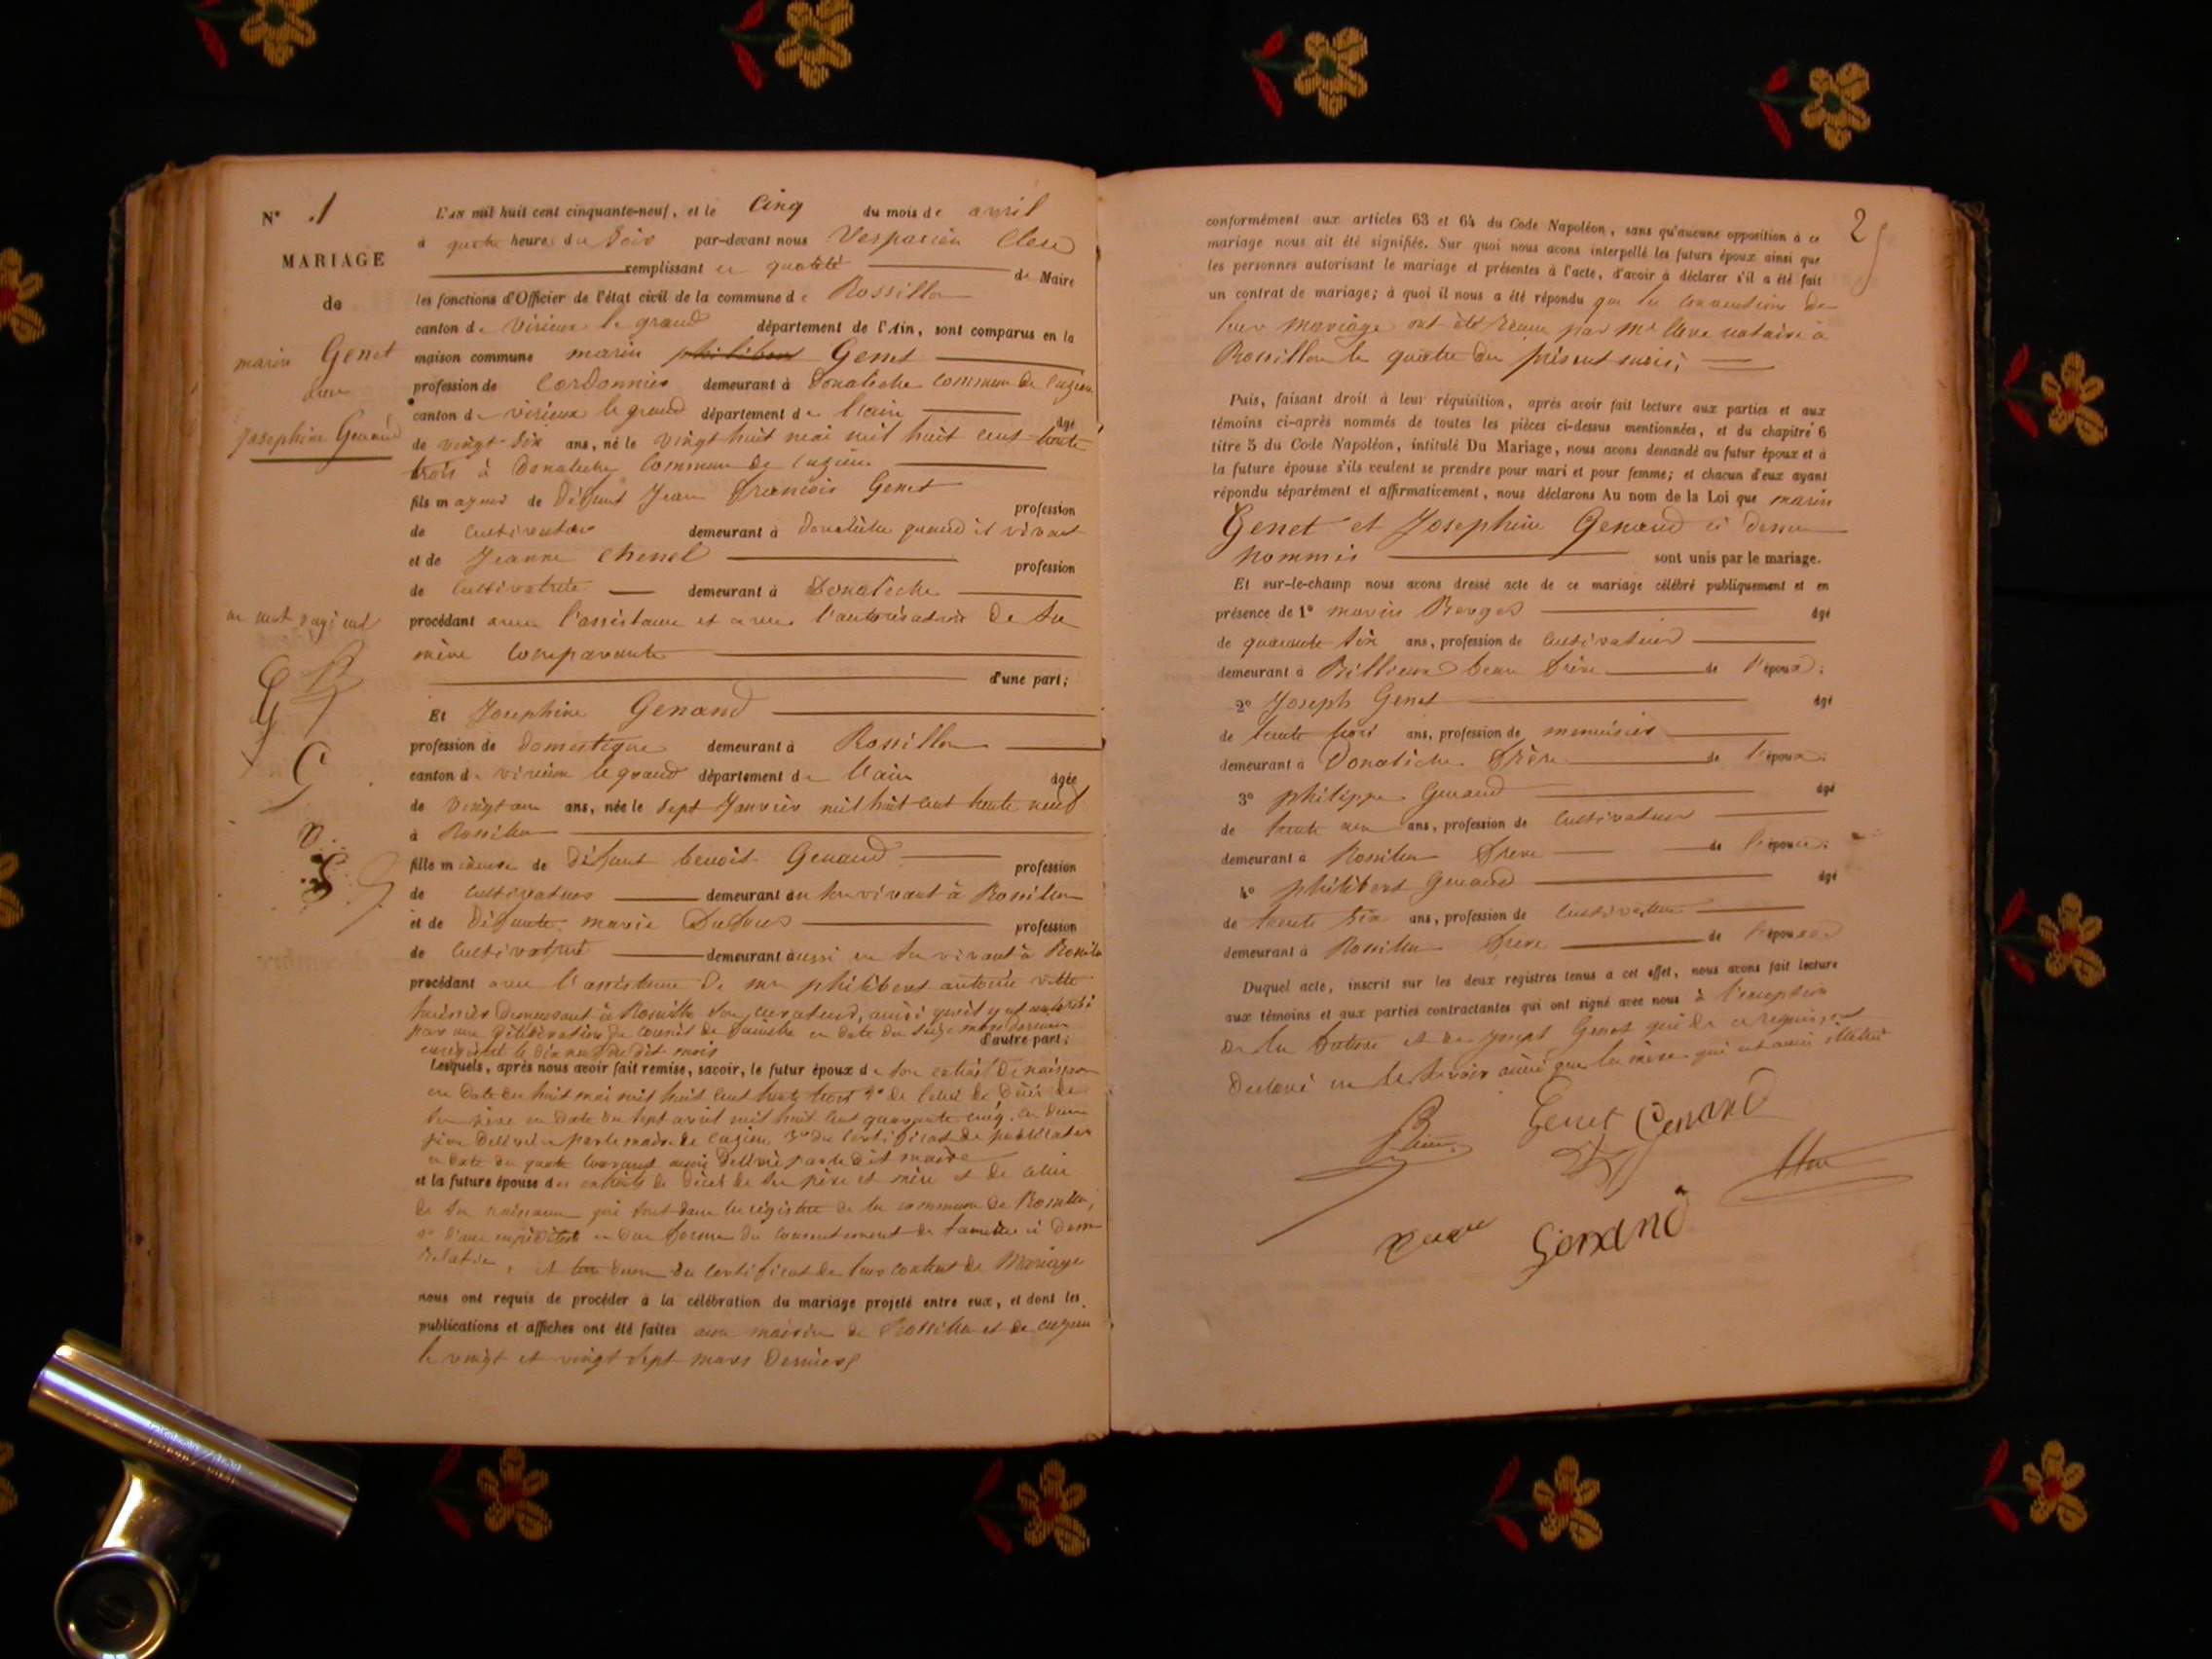 N° 1
MARIAGE
de
marin Genet
avec
Josephine Genand
un mot rayé nul
L'an mil huit cent cinquante-neuf, et le Cinq du mois de avril
à quatre heures du Soir par-devant nous Vespasien
remplissant en qualité de Maire
les fonctions d'Officier de l'état civil de la commune de Rossillon
canton de virieux le grand département de l'Ain, sont comparus en la
maison commune marin philibert Genet
profession de Cordonnier demeurant à Donalèche commune de Cuzieu
canton de virieux le grand département de l'ain âgé
de vingt six ans, né le vingt huit mai mil huit cent trente
trois à Donalèche Commune de Cuzieu
fils majeur de Défunt Jean François Genet profession
de Cultivateur demeurant à Donalèche quand il vivait
et de Jeanne Chenel profession
de Cultivatrice demeurant à Donalèche
procédant avec l'assistance et avec l'autorisation de Sa
mère Comparante
d'une part;
Et Josephine Genand
profession de Domestique demeurant à Rossillon
canton de virieux le grand département de l'ain âgée
de vingt ans, née le Sept Janvier mil huit cent trente neuf
à Rossillon
fille mineure de Défunt benoit Genand profession
de Cultivateur demeurant en Son vivant à Rossillon
et de Défunte marie Dufour profession
de Cultivatrice demeurant aussi en Son vivant à Rossillon
procédant avec l'assistance de mr philibert antoine
huissier Demeurant à Rossillon Son curateur, ainsi qu'il y est autorisé
par une délibération du conseil de famille en date du seize mars dernier
enregistré le dix neuf du dit mois d'autre part;
Lesquels, après nous avoir fait remise, savoir, le futur époux de Son extrait De naissance
en Date du huit mai mil huit cent trente trois 2° de Celui de Décès de
Son père en Date du Sept avril mil huit cent quarante cinq. ces deux
pièces Délivrées par le maire de Cuzieu 3° du Certificat de publication
en date du quatre Courant aussi Délivré par le dit maire
et la future épouse des extraits de Décès de Ses père et mère et de celui
de Sa naissance qui Sont dans les registres de la commune de Rossillon,
2° d'une expédition en due forme du consentement de famille ci dessus
Relatée, et du Certificat de leur contrat de Mariage
nous ont requis de procéder à la célébration du mariage projeté entre eux, et dont les
publications et affiches ont été faites aux mairies de Rossillon et de cuzieu
le vingt et vingt Sept mars Derniers
2
conformément aux articles 63 et 64 du Code Napoléon, sans qu'aucune opposition à ce
mariage nous ait été signifiée. Sur quoi nous avons interpellé les futurs époux ainsi que
les personnes autorisant le mariage et présentes à l'acte, d'avoir à déclarer s'il a été fait
un contrat de mariage; à quoi il nous a été répondu que les conventions de
leur mariage ont été reçues par Me notaire à
Rossillon le quatre du présent mois;
Puis, faisant droit à leur réquisition, après avoir fait lecture aux parties et aux
témoins ci-après nommés de toutes les pièces ci-dessus mentionnées, et du chapitre 6
titre 5 du Code Napoléon, intitulé Du Mariage, nous avons demandé au futur époux et à
la future épouse s'ils veulent se prendre pour mari et pour femme; et chacun d'eux ayant
répondu séparément et affirmativement, nous déclarons Au nom de la Loi que marin
Genet et Josephine Genand ci dessus
nommés sont unis par le mariage.
Et sur-le-champ nous avons dressé acte de ce mariage célébré publiquement et en
présence de 1° marin Berger âgé
de quarante Six ans, profession de Cultivateur
demeurant à Billieux beau frère de l'époux;
2° Joseph Genet âgé
de trente trois ans, profession de menuisier
demeurant à Donalèche Frère de l'époux;
3° philippe Genand âgé
de trente ans, profession de Cultivateur
demeurant à Rossillon Frère de l'épouse;
4° philibert Genand âgé
de trente Six ans, profession de Cultivateur
demeurant à Rossillon Frère de l'épouse
Duquel acte, inscrit sur les deux registres tenus à cet effet, nous avons fait lecture
aux témoins et aux parties contractantes qui ont signé avec nous à l'exception
de la future et de Joseph Genet qui de ce requis ont
Déclaré ne le Savoir ainsi que la mère qui est aussi illétrée
Genet Genand
Genand